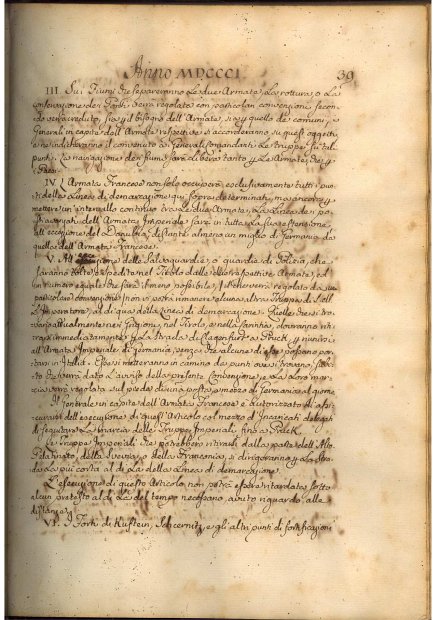 Anno MDCCCI. 39
III. Sui Fiumi che separeranno le due Armate, la rottura, o la
conservazione dei Ponti verrà regolata con particolari convenzioni secon-
do verrà creduto, sia pel bisogno dell'Armate, sia per quello de' comuni; i
Generali in capite dell'Armate respective si accorderanno su questi oggetti,
e ne indicheranno il convenuto ai Generali comandanti le truppe su tali
punti. La navigazione dei fiumi sarà libera tanto per le Armate, che pel
Paese.
IV. L'Armata Francese non solo occuperà esclusivamente tutti i pun-
ti della Linea di demarcazione qui sopra determinati, ma ancora per
mettere un intervallo continuo tra le due Armate, la linea dei po-
sti avanzati dell'Armata Imperiale sarà in tutta la sua estensione,
all'eccezione del Danubio, distante almeno un miglio di Germania da
quella dell'Armata Francese.
V. All'eccezione delle Salvaguardie, o guardie di Polizia, che
saranno lasciate, o spedite nel Tirolo dalle respettive Armate, ed
in numero eguale, che sarà il meno possibile, il che verrà regolato da una
particolare convenzione, non vi potrà rimanere alcuna altra Truppa di S. M.
l'Imperatore al di qua della linea di demarcazione. Quelle che si tro-
vano attualmente nei Grigioni, nel Tirolo, e nella Carintia, dovranno riti-
rarsi immediatamente per la strada di Clagenfurt a Pruck per riunirsi
all'Armata Imperiale di Germania, senza che alcune di esse possano por-
tarsi in Italia. Esse si metteranno in camino dai punti ove si trovano subi-
to che verrà dato l'avviso della presente Convenzione, e la loro mar-
cia verrà regolata sul piede di una posta e mezzo di Germania al giorno.
Il Generale in capite dell'Armata Francese è autorizzato di as-
sicurarsi dell'esecuzione di quest'Articolo col mezzo d'Incaricati delegati
di seguitare la marcia delle Truppe Imperiali fino a Pruck.
Le Truppe Imperiali che potrebbero ritirarsi dalla parte dell'Alto
Palatinato, della Svevia, o della Franconia, si dirigeranno per la stra-
da la più corta al di là della linea di demarcazione.
L'esecuzione di questo Articolo non potrà essere ritardata sotto
alcun pretesto al di là del tempo necessario, avuto riguardo alle
distanze.
VI. I Forti di Kufstein, Scoernitz, e gli altri punti di fortificazioni